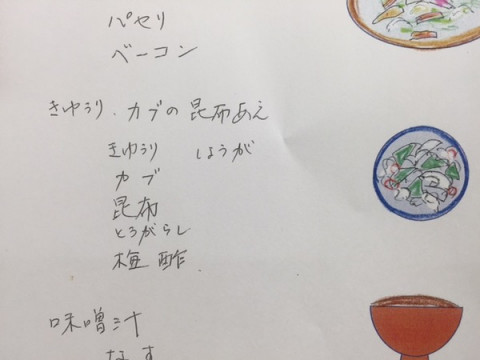 パセリ
ベーコン
きゆうり、カブの昆布あえ
きゆうり しょうが
カブ
昆布
とうがらし
梅酢
味噌汁
なす